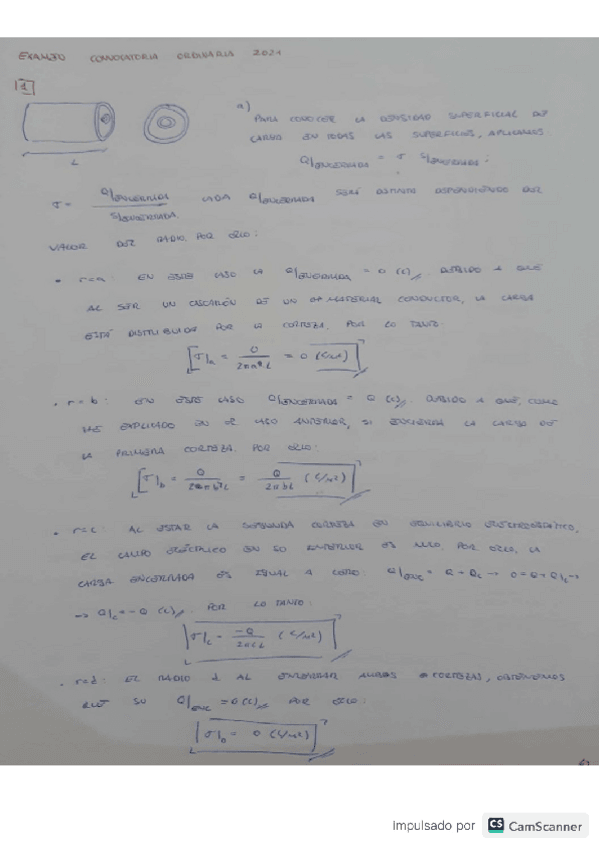 EXAMEN CONVOCATORIA ORDINARIA 2021
1
L
a) PARA CONOCER LA DENSIDAD SUPERFICIAL DE
CARGA EN TODAS LAS SUPERFICIES, APLICAMOS
Q|ENCERRADA = σ S|ENCERRADA :
σ = Q|ENCERRADA / S|ENCERRADA. CADA Q|ENCERRADA SERÁ DISTINTA DEPENDIENDO DEL
VALOR DEL RADIO, POR ELLO:
· r=a : EN ESTE CASO LA Q|ENCERRADA = 0 (C), DEBIDO A QUE
AL SER UN CASCARÓN DE UN MATERIAL CONDUCTOR, LA CARGA
ESTÁ DISTRIBUIDA POR LA CORTEZA, POR LO TANTO:
[σ|a = 0 / 2πa²L = 0 (C/m²)]
· r=b : EN ESTE CASO Q|ENCERRADA = Q (C), DEBIDO A QUE, COMO
HE EXPLICADO EN EL CASO ANTERIOR, SI ENCIERRA LA CARGA DE
LA PRIMERA CORTEZA. POR ELLO:
[σ|b = Q / 2πb²L = Q / 2πbL (C/m²)]
· r=c : AL ESTAR LA SEGUNDA CORTEZA EN EQUILIBRIO ELECTROSTÁTICO,
EL CAMPO ELÉCTRICO EN SU INTERIOR ES NULO, POR ELLO, LA
CARGA ENCERRADA ES IGUAL A CERO: Q|ENC = Q + Qc → 0 = Q + Q|c →
→ Q|c = -Q (C), POR LO TANTO:
[σ|c = -Q / 2πcL (C/m²)]
· r=d : EL RADIO d AL ENCERRAR AMBAS CORTEZAS, OBTENEMOS
QUE SU Q|ENC = 0 (C), POR ELLO:
[σ|D = 0 (C/m²)]
Impulsado por CS CamScanner